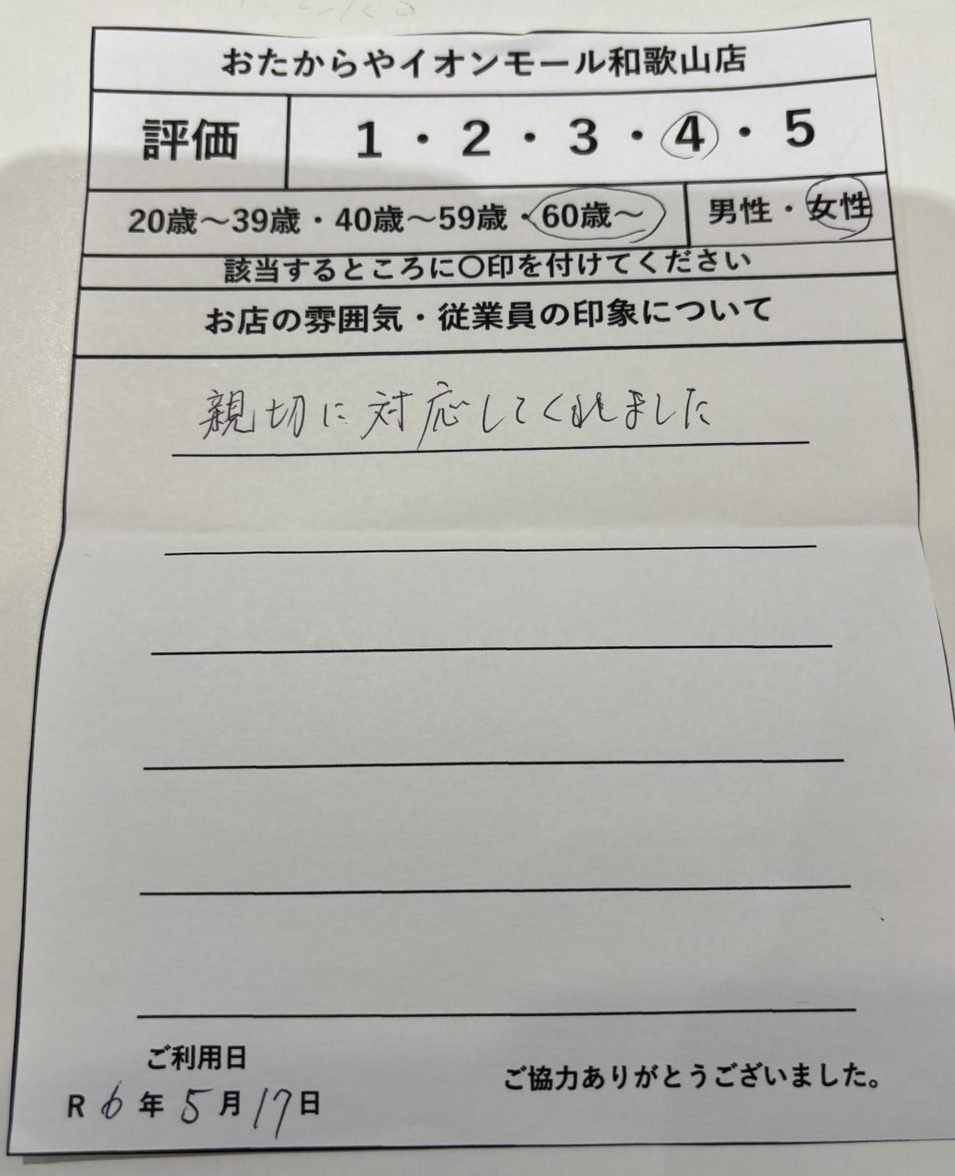 おたからやイオンモール和歌山店
評価 1・2・3・4・5
20歳～39歳・40歳～59歳・60歳～ 男性・女性
該当するところに〇印を付けてください
お店の雰囲気・従業員の印象について
親切に対応してくれました
ご利用日
R6年5月17日
ご協力ありがとうございました。